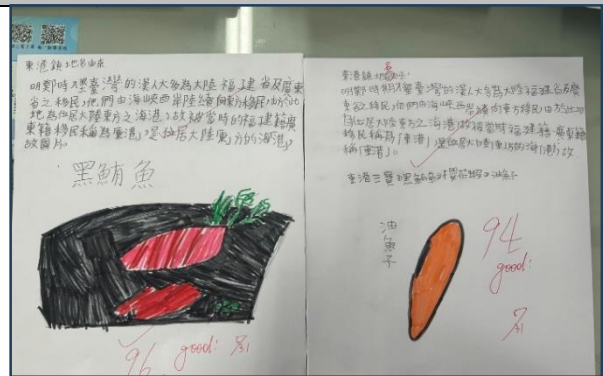 東港鎮地名由來
明鄭時 臺灣的漢人大多為大陸福建省及廣東
省之移民,他們由海峽西岸陸續向東方移民,由於此
地為位居大陸東方之海港,故被當時的福建籍廣
東籍移民稱為東港,意指居大陸東方的海港,
黑鮪魚
96 good! 7/31
東港鎮地名
明鄭時期 臺灣的漢人大多為大陸福建省及廣
東省移民,他們由海峽西岸陸續向東方移民,由於此地
位居大陸東方之海港,故被當時福建籍、廣東籍
移民稱為「東港」,
稱「東港」。
東港三寶:黑鮪魚、櫻花蝦、油魚子
油魚子
94
good!
7/31